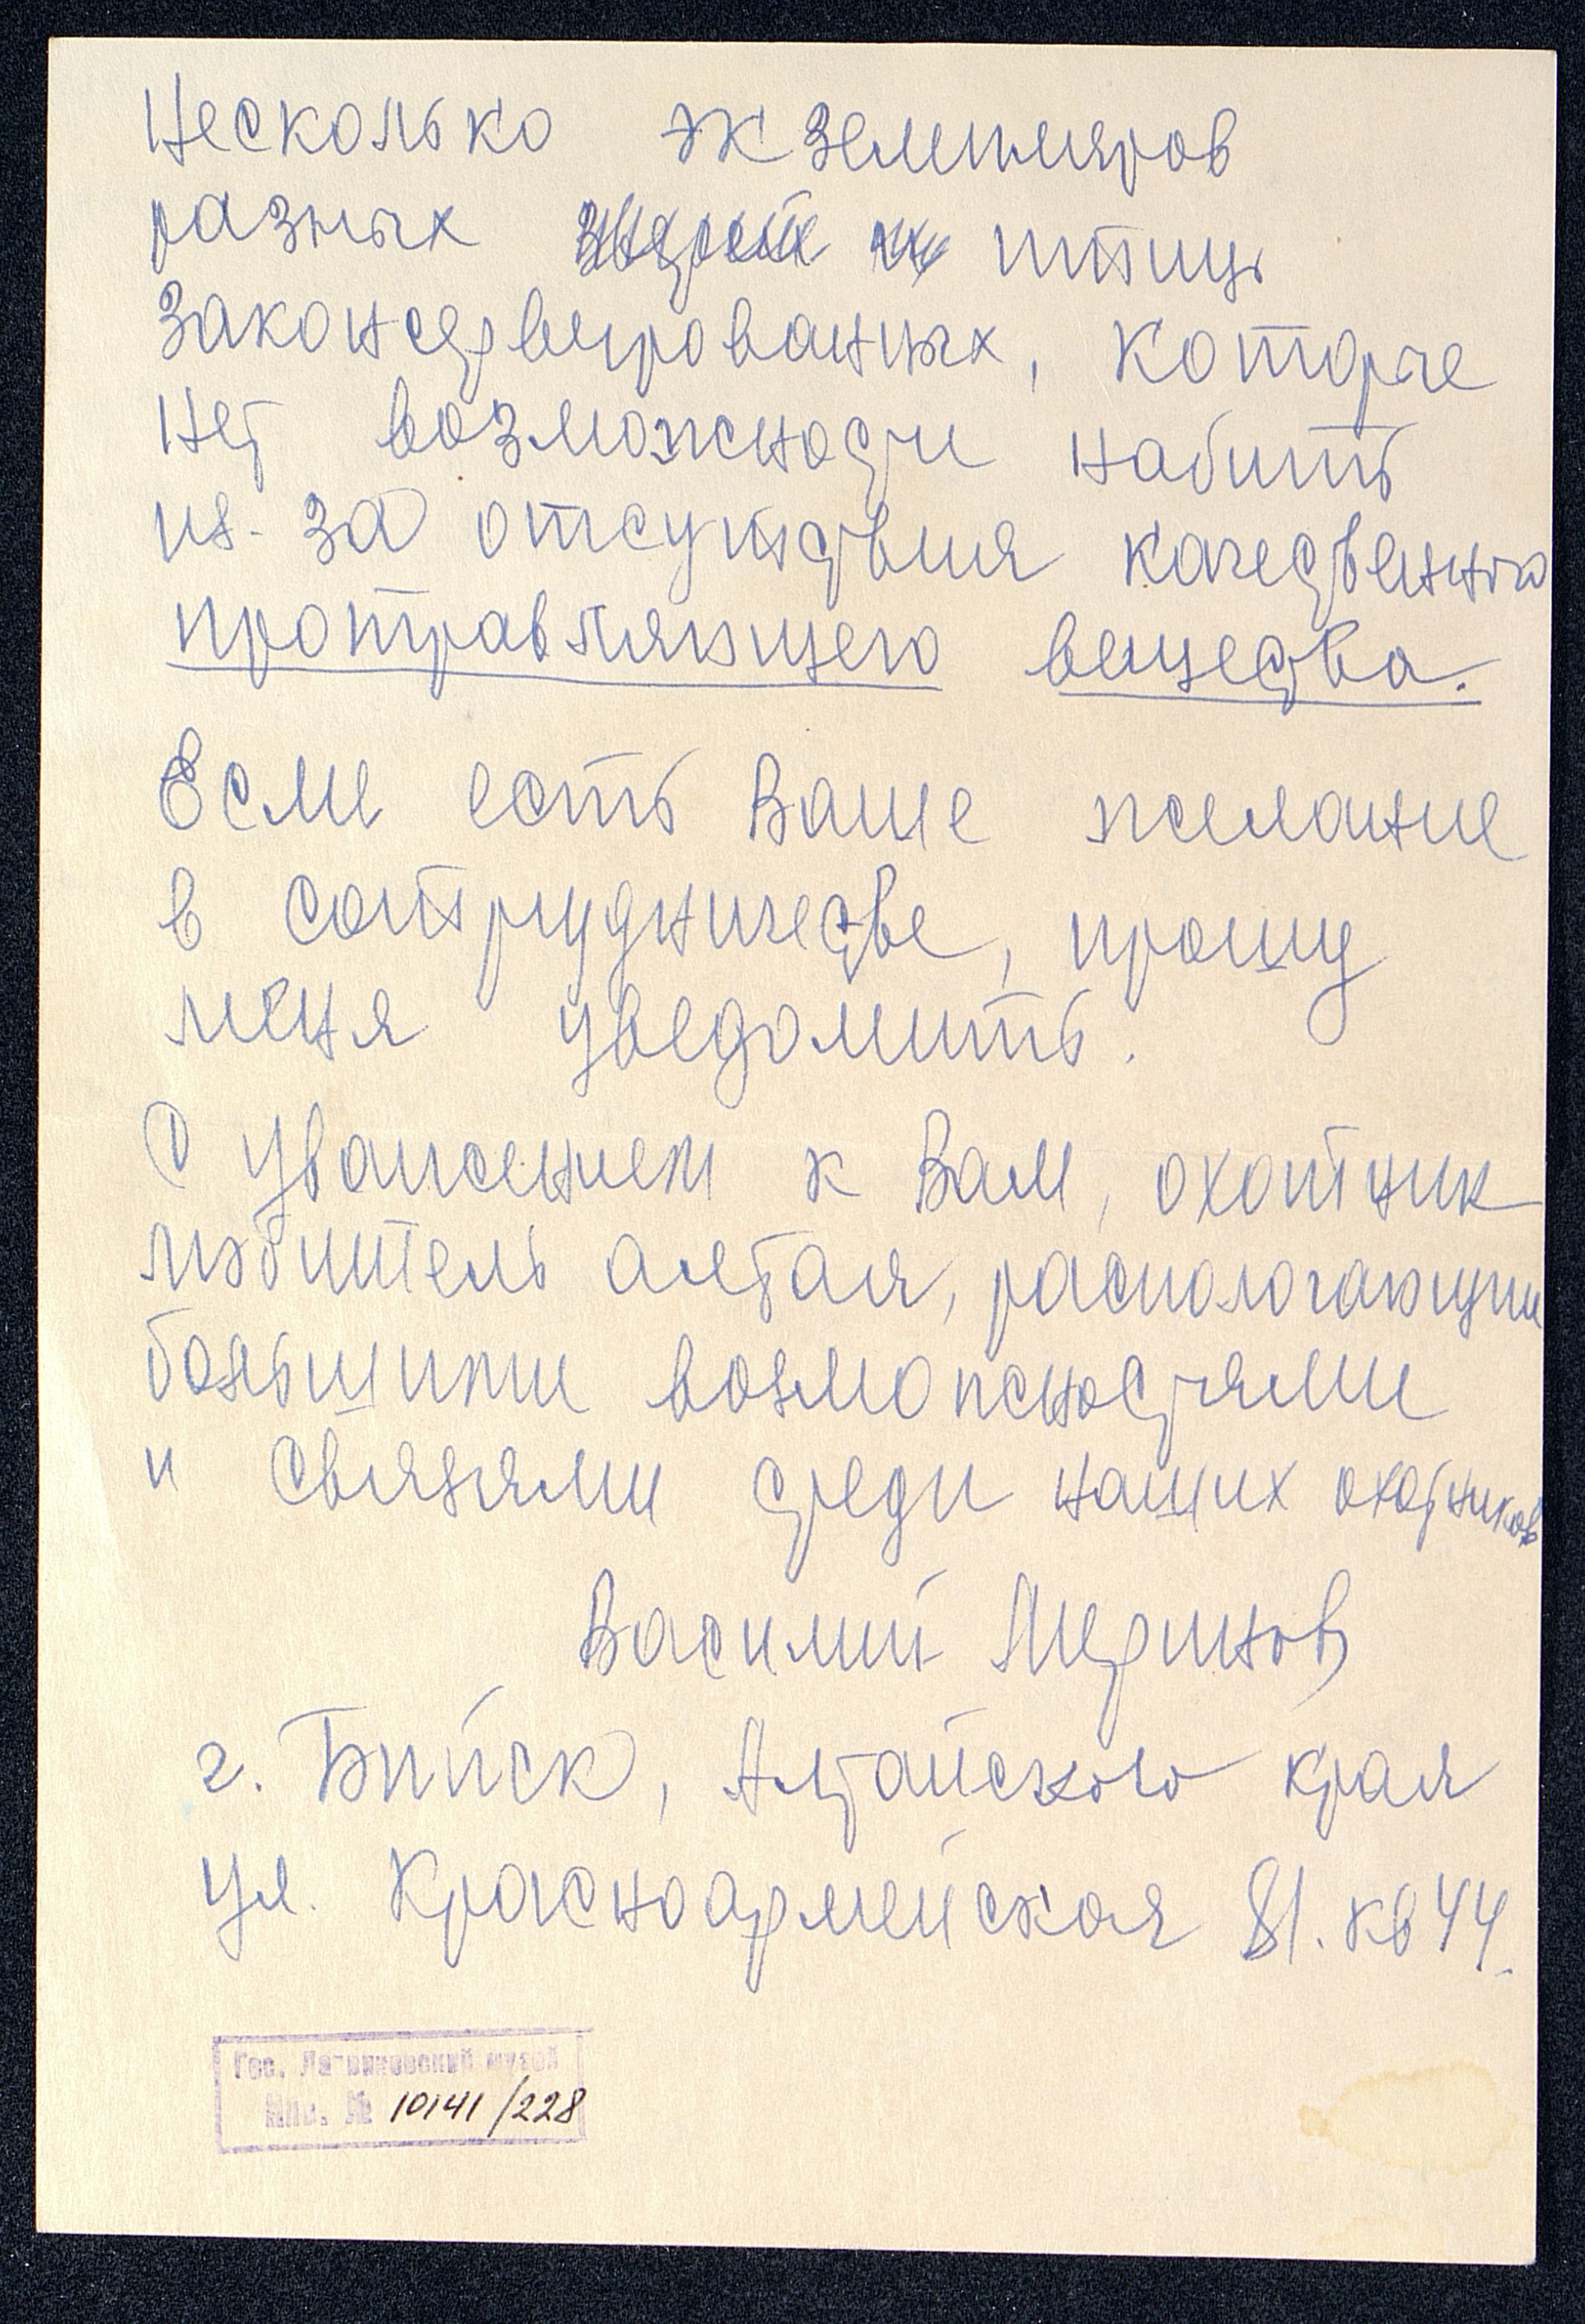 Несколько экземпляров
разных птиц
законсервированных, которые
нет возможности набить
из-за отсутствия качественного
протравляющего вещества.
Если есть Ваше желание
в сотрудничестве, прошу
меня уведомить.
С уважением к Вам, охотник
любитель алтая, распологающий
большими возможностями
и связями среди наших охотников
Василий Меринов
г. Бийск, Алтайского края
ул. Красноармейская 81. кв 44.
Гос. Дарвиновский музей
Инв. № 10141/228